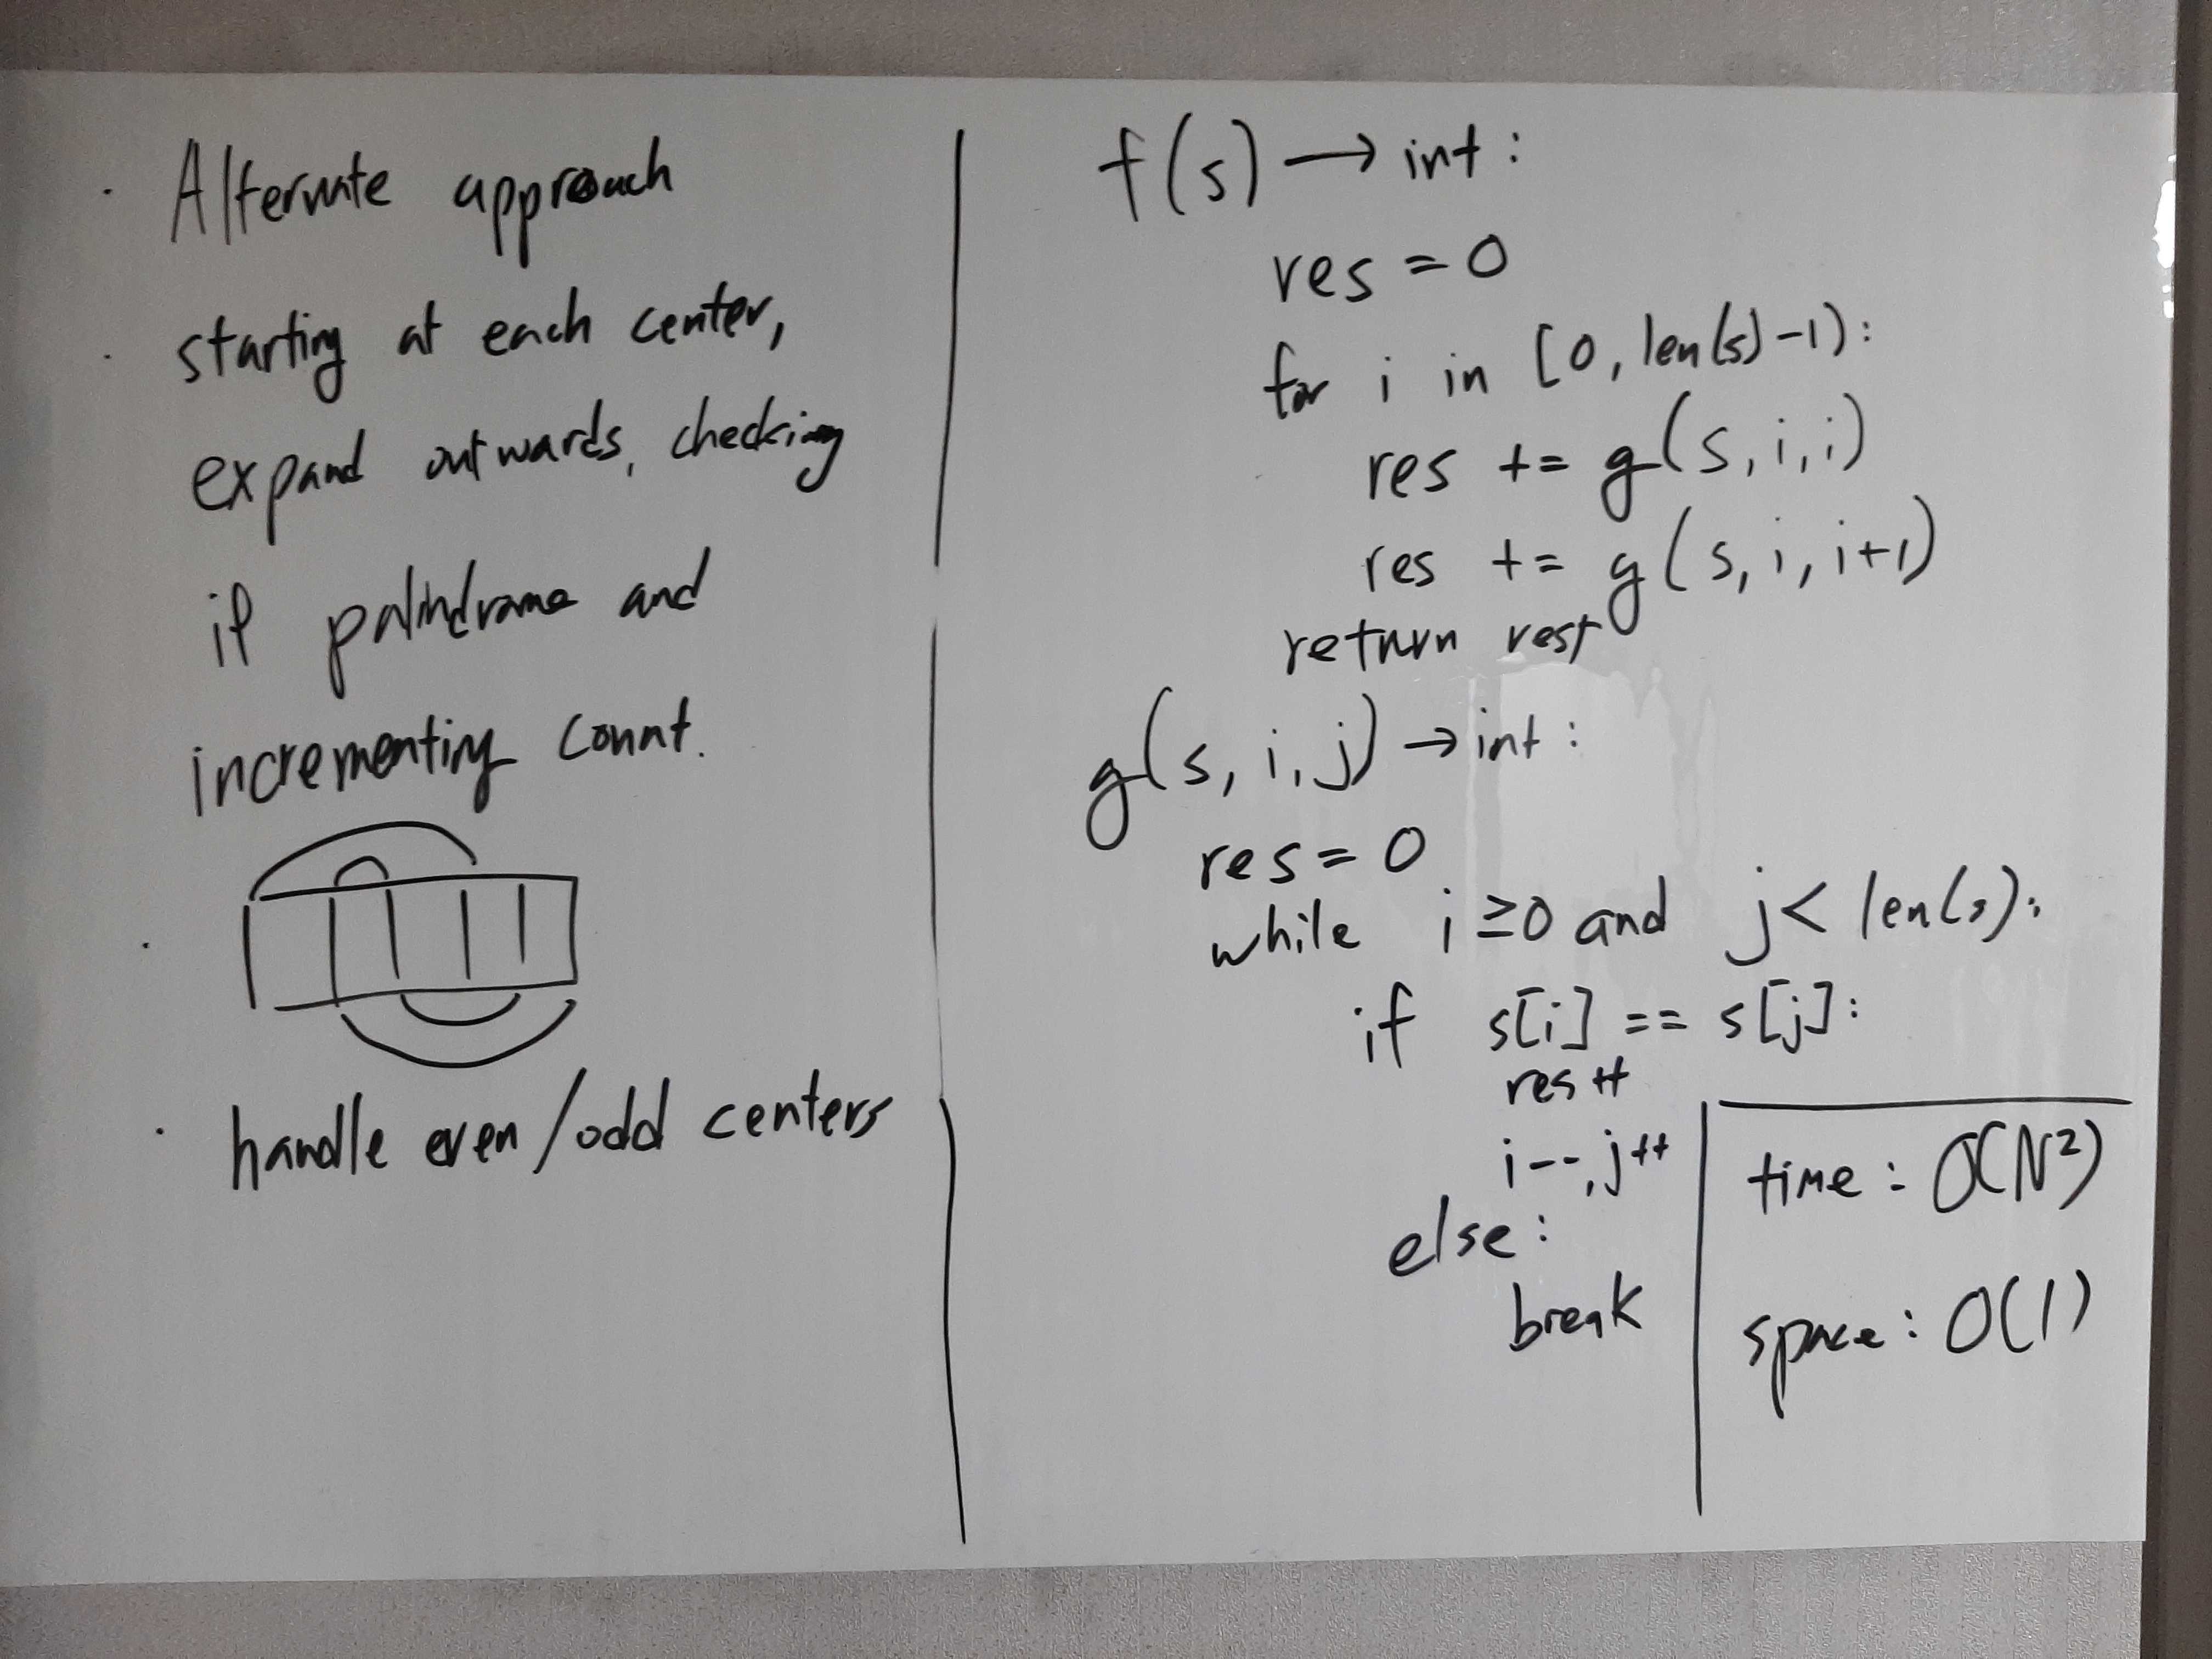 · Alternate approach
· starting at each center,
expand outwards, checking
if palindrome and
incrementing count.
· handle even/odd centers
f(s) → int :
res = 0
for i in [0, len(s)-1):
res += g(s, i, i)
res += g(s, i, i+1)
return rest
g(s, i, j) → int :
res = 0
while i ≥ 0 and j < len(s):
if s[i] == s[j]:
res++
i--, j++
else:
break
time : O(N²)
space : O(1)